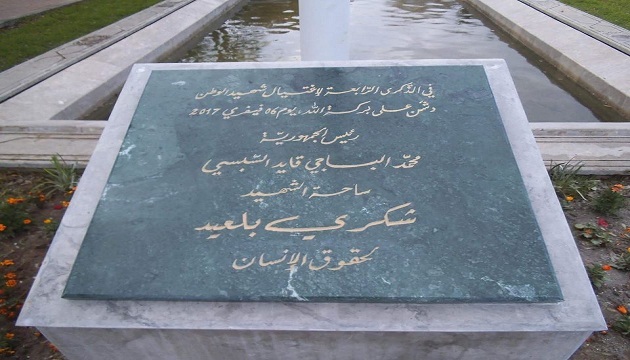 في الذكرى الرّابعة لاغتيال شهيد الوطن
دشّن على بركة الله، يوم 06 فيفري 2017
رئيس الجمهوريّة
محمّد الباجي قايد السّبسي
ساحة الشهيد
شكري بلعيد
لحقوق الإنسان